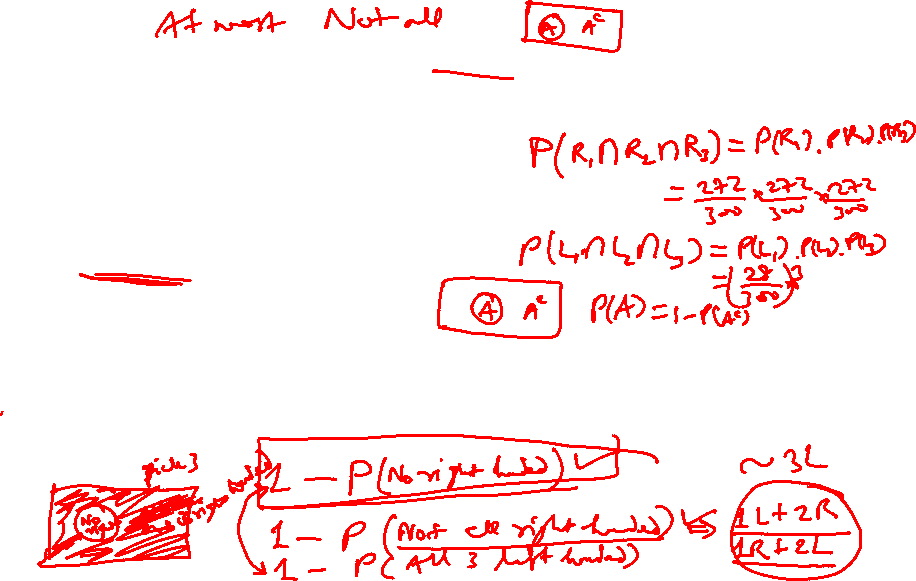 At most Not all
A Aᶜ
P(R₁∩R₂∩R₃) = P(R₁).P(R₂).P(R₃)
= 272/300 × 272/300 × 272/300
P(L₁∩L₂∩L₃) = P(L₁).P(L₂).P(L₃)
= (28/300)³
A Aᶜ P(A) = 1 - P(Aᶜ)
pick 3
No right
1 - P(No right handed)
1 - P(Not all right handed)
1 - P(All 3 left handed)
~ 3L
1L + 2R
1R + 2L